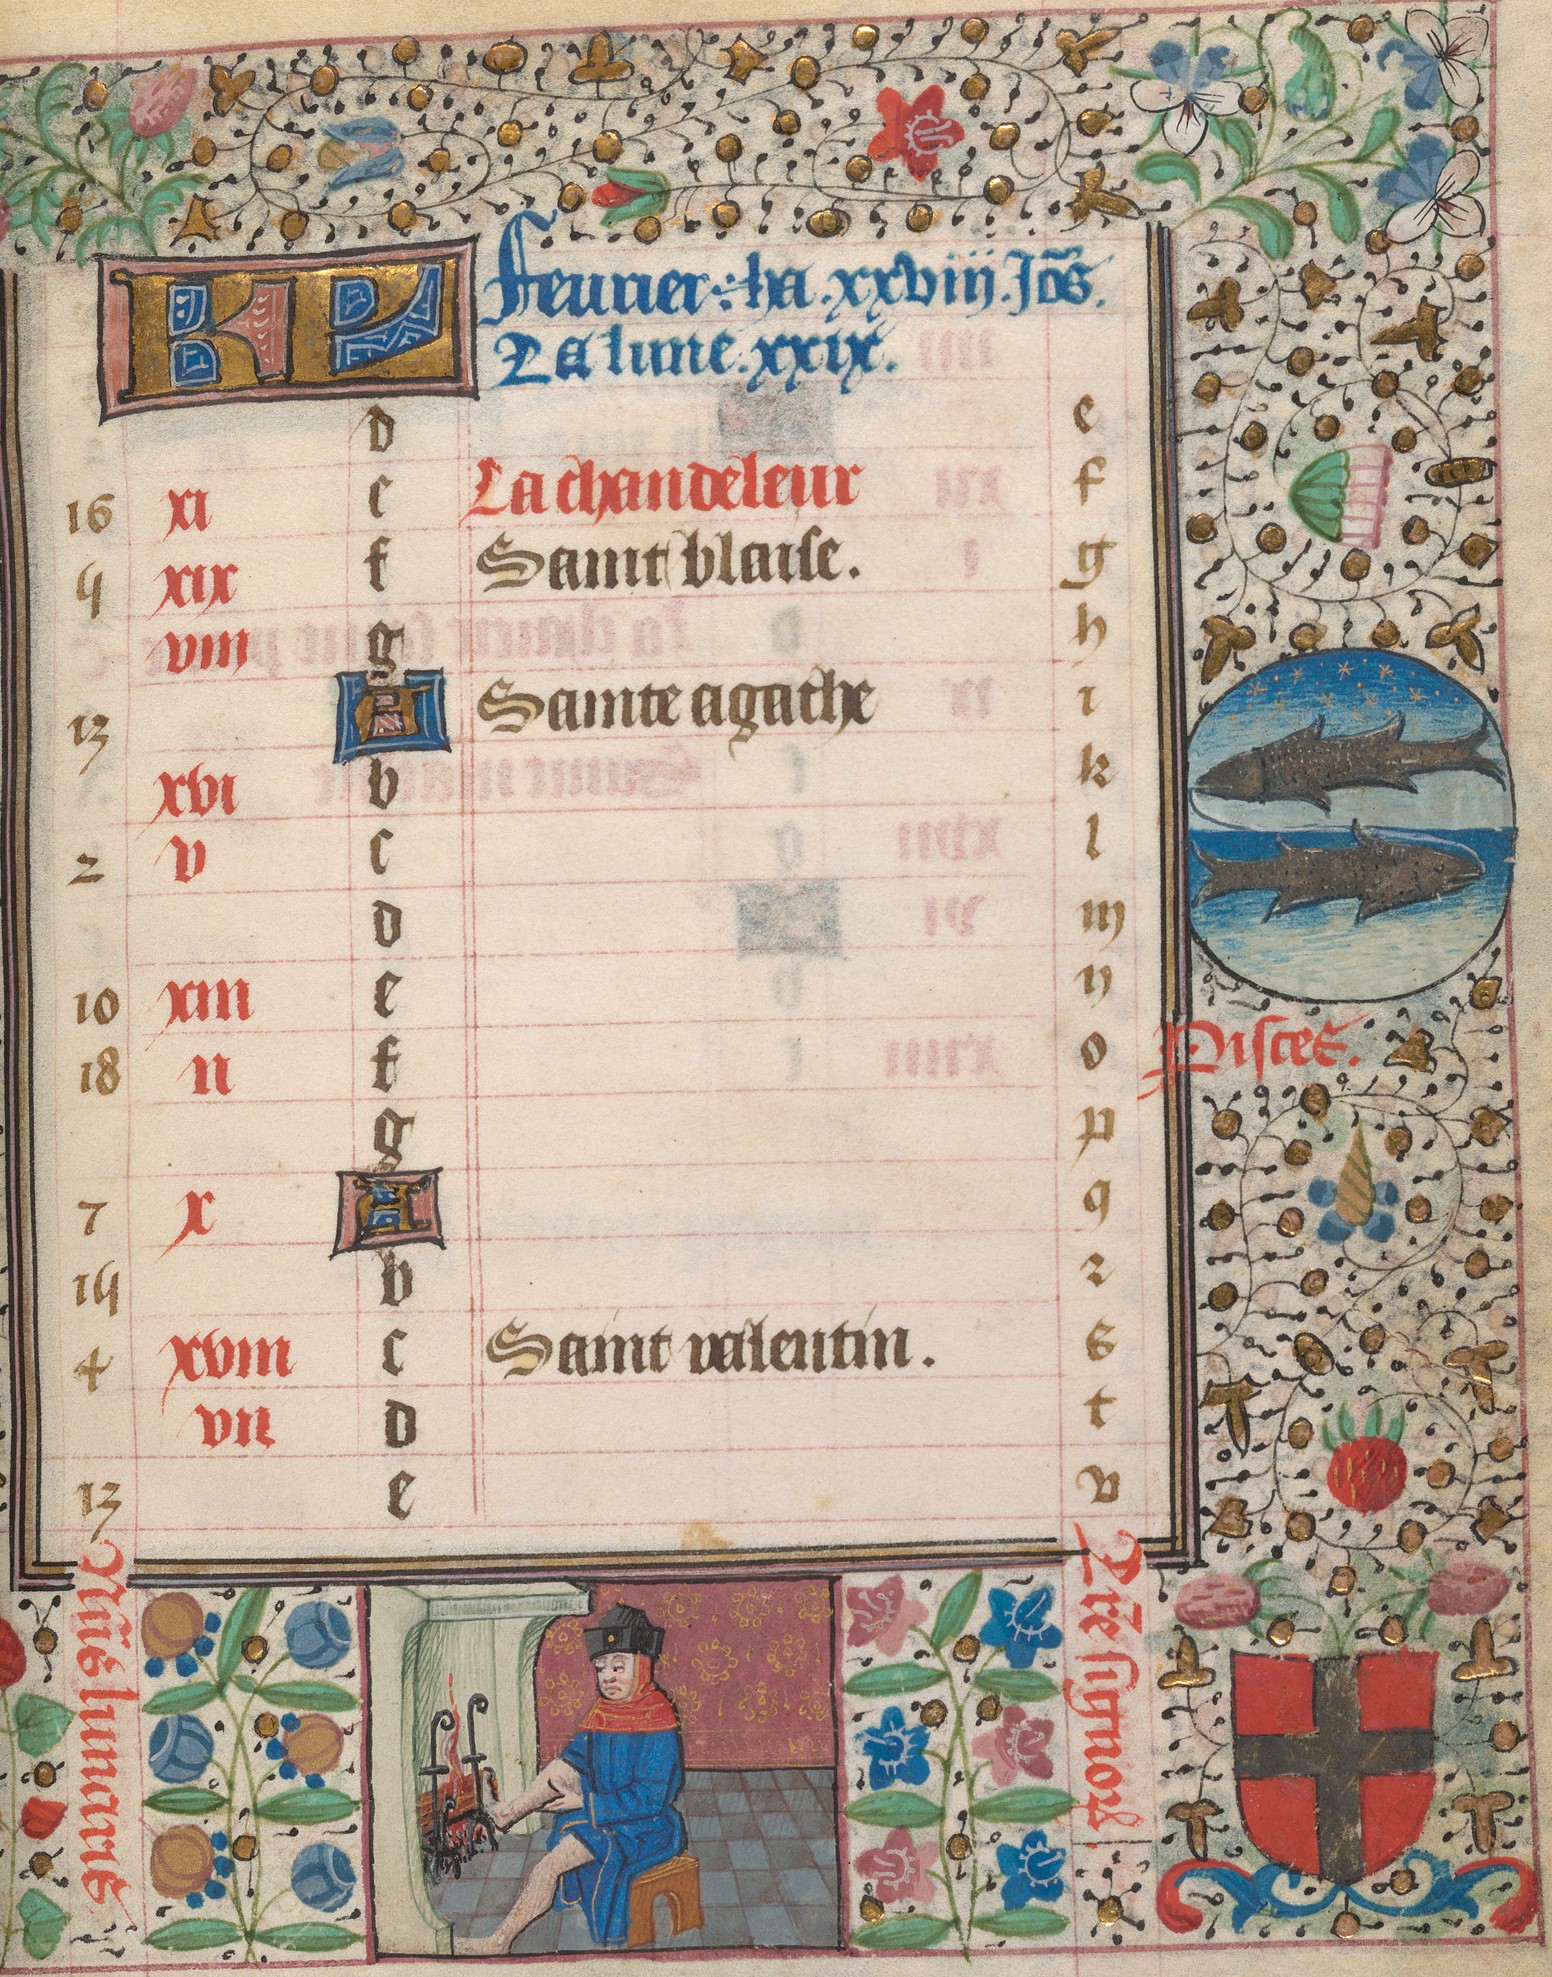 KL Feurier : ha . xxviii . Jo͞s .
La lune . xxix .
d e
16 xi e La chandeleur f
4 xix f Saint blaise . g
viii g h
13 A Sainte agathe i
xvi b k
2 v c l
d m
10 xiii e n
18 ii f o
g p
7 x A q
14 b r
4 xviii c Saint valentin . s
vii d t
13 e v
Pisces .
lunaris
signorum